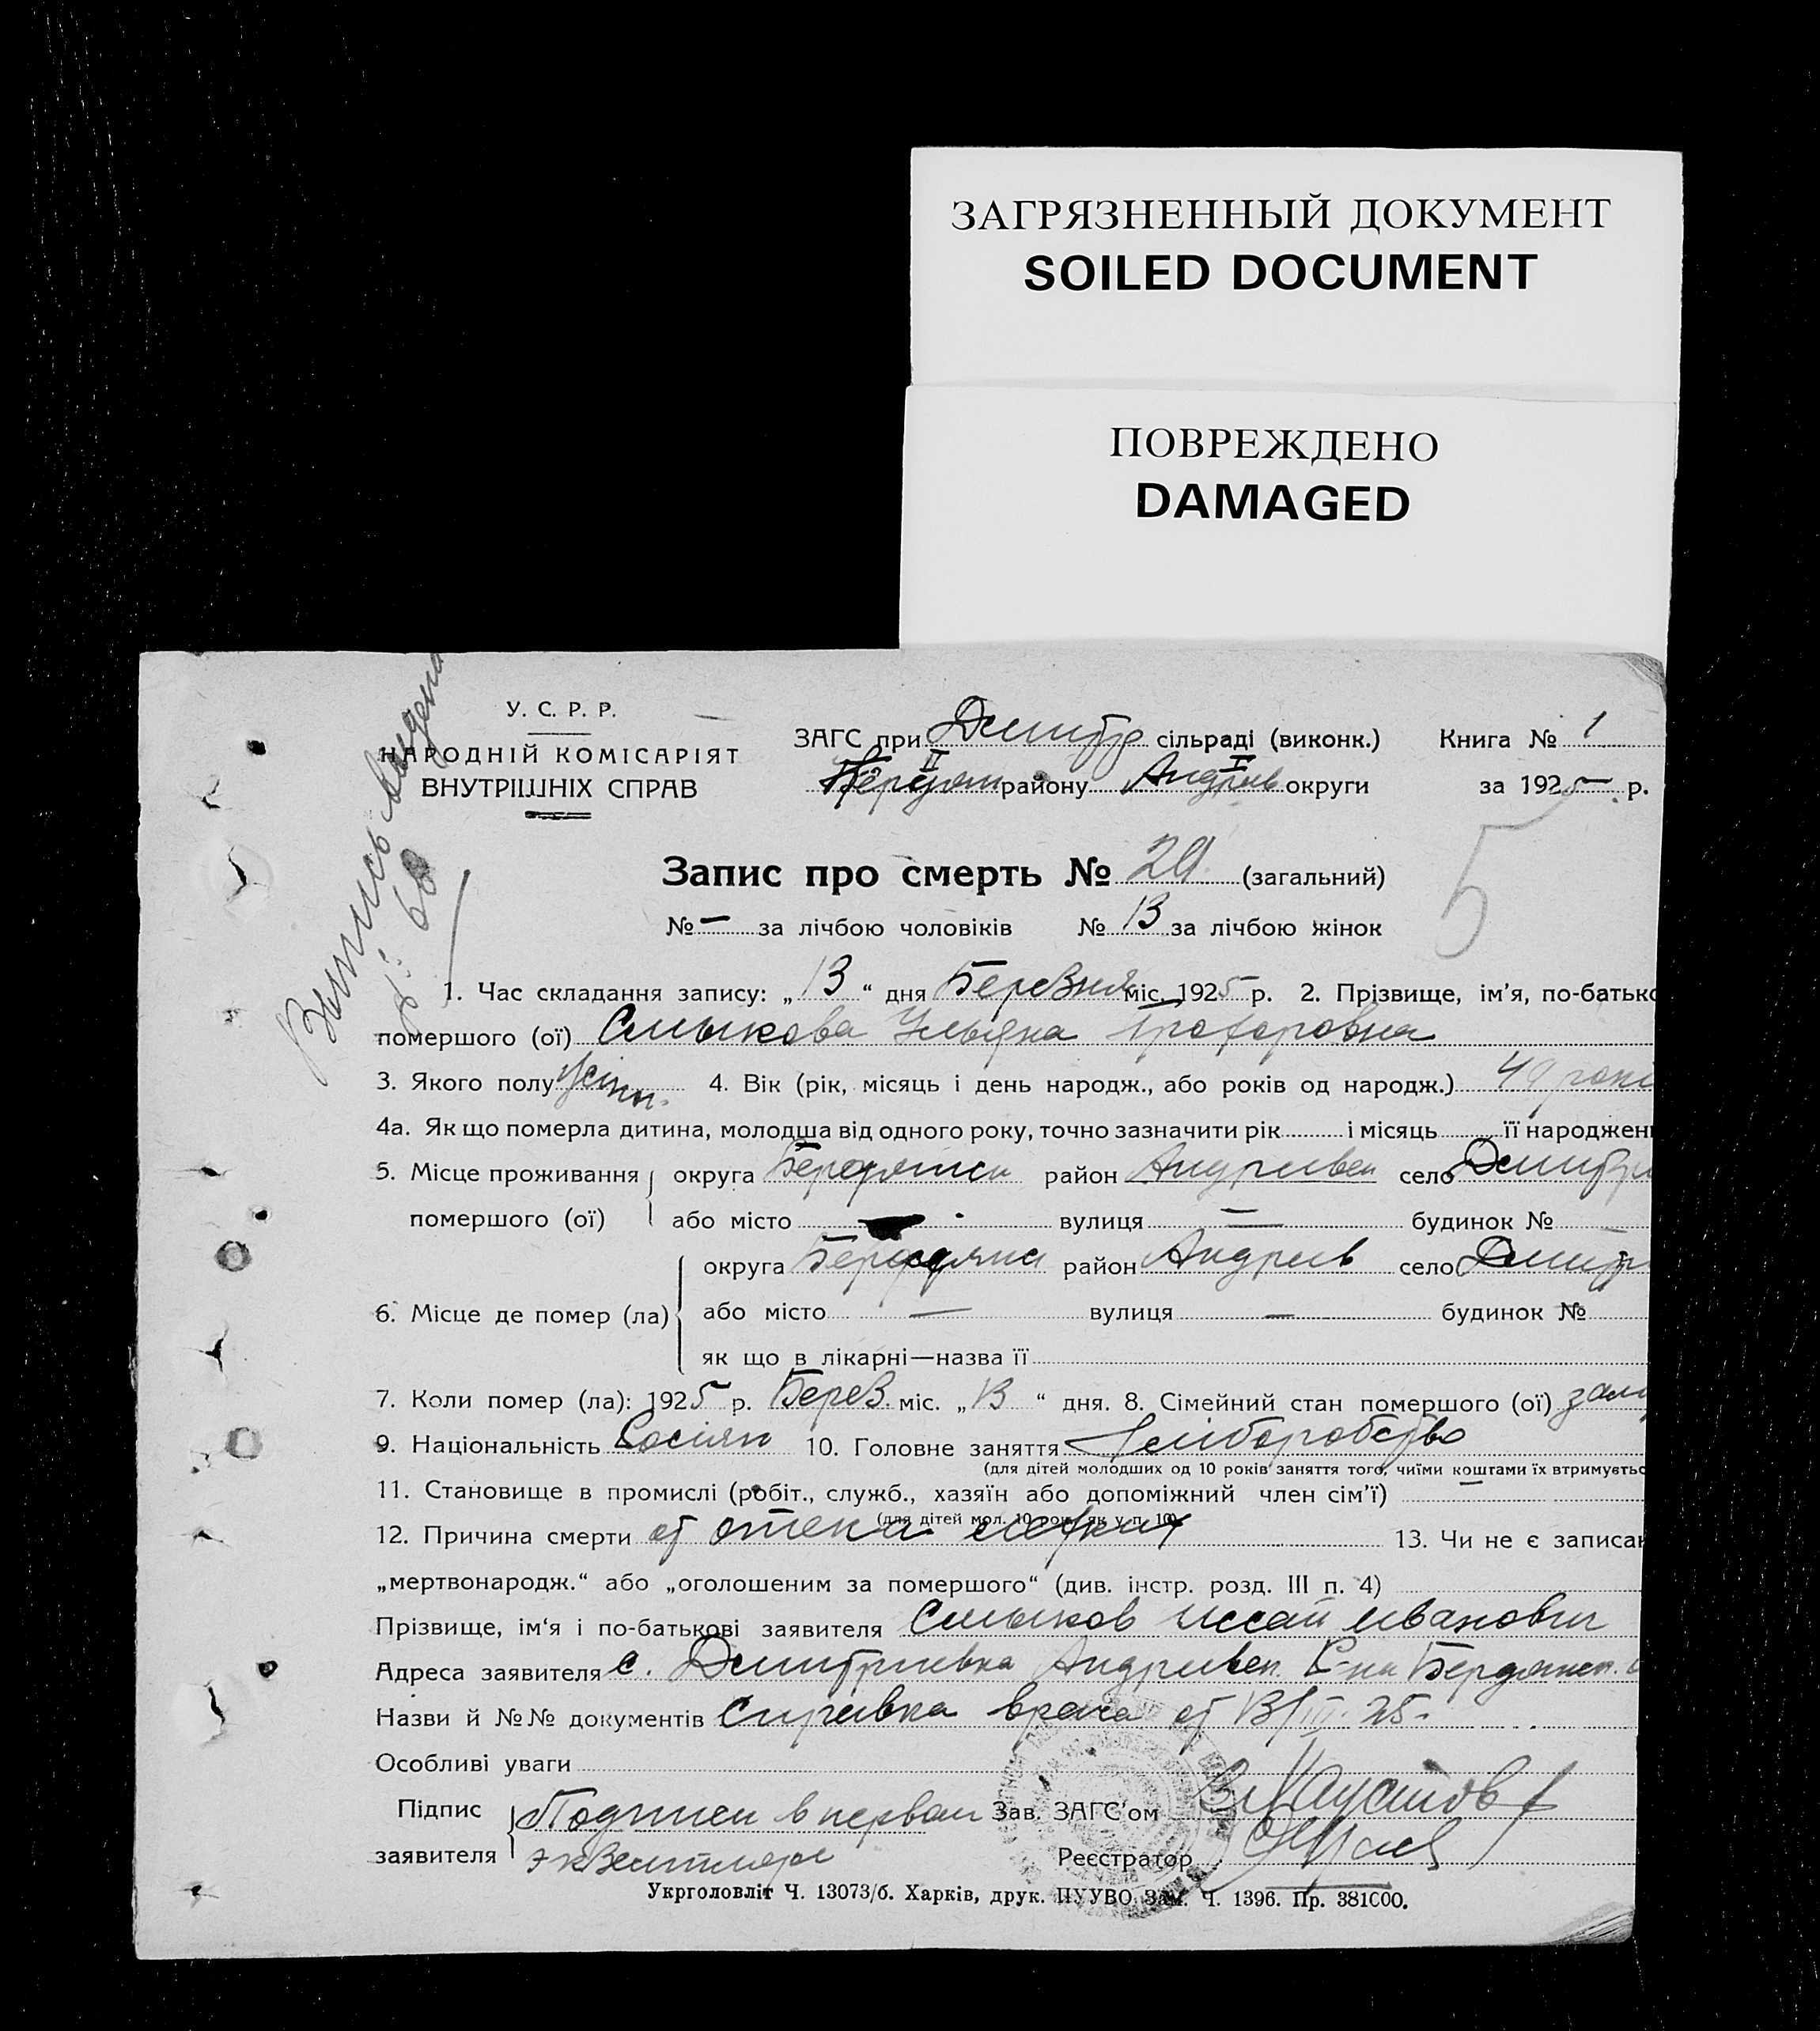 ЗАГРЯЗНЕННЫЙ ДОКУМЕНТ
SOILED DOCUMENT
ПОВРЕЖДЕНО
DAMAGED
У. С. Р. Р.
НАРОДНІЙ КОМІСАРІЯТ
ВНУТРІШНІХ СПРАВ
Выпись выдена
68
ЗАГС при Дмитр сільраді (виконк.) Книга № 1
II I
Бердян району Андрів округи за 1925 р.
5
Запис про смерть № 29 (загальний)
№ — за лічбою чоловіків № 13 за лічбою жінок
1. Час складання запису: „ 13 “ дня Березня міс. 1925 р. 2. Прізвище, ім’я, по-батько
помершого (ої) Смыкова Ульяна Прохоровна
3. Якого полу жіноч. 4. Вік (рік, місяць і день народж., або років од народж.) 49 рокі
4а. Як що померла дитина, молодша від одного року, точно зазначити рік і місяць її народжен
5. Місце проживання округа Бердянськ район Андриевск село Дмитри
помершого (ої) або місто вулиця — будинок №
округа Бердянск район Андриев село Дмитр
6. Місце де помер (ла) або місто — вулиця — будинок №
як що в лікарні—назва її
7. Коли помер (ла): 1925 р. Берез. міс. „ 13 “ дня. 8. Сімейний стан помершого (ої) зам
9. Національність Росіян 10. Головне заняття Хліборобство
(для дітей молодших од 10 років заняття того, чиїми коштами їх втримуєтьс
11. Становище в промислі (робіт., служб., хазяїн або допоміжний член сім’ї) —
(для дітей мол. 10 рок. як у п. 10)
12. Причина смерти от отека легких 13. Чи не є записан
„мертвонародж.“ або „оголошеним за помершого“ (див. інстр. розд. III п. 4)
Прізвище, ім‘я і по-батькові заявителя Смыков Иссай Иванович
Адреса заявителя с. Дмитриевка Андриевск. Р-на Бердянск.
Назви й №№ документів Справка врача от 13/III 25.
Особливі уваги
Підпис Подписи в первом Зав. ЗАГС’ом
заявителя экземпляре Реєстратор
Укрголовліт Ч. 13073/б. Харків, друк. ПУУВО Зам. Ч. 1396. Пр. 381000.